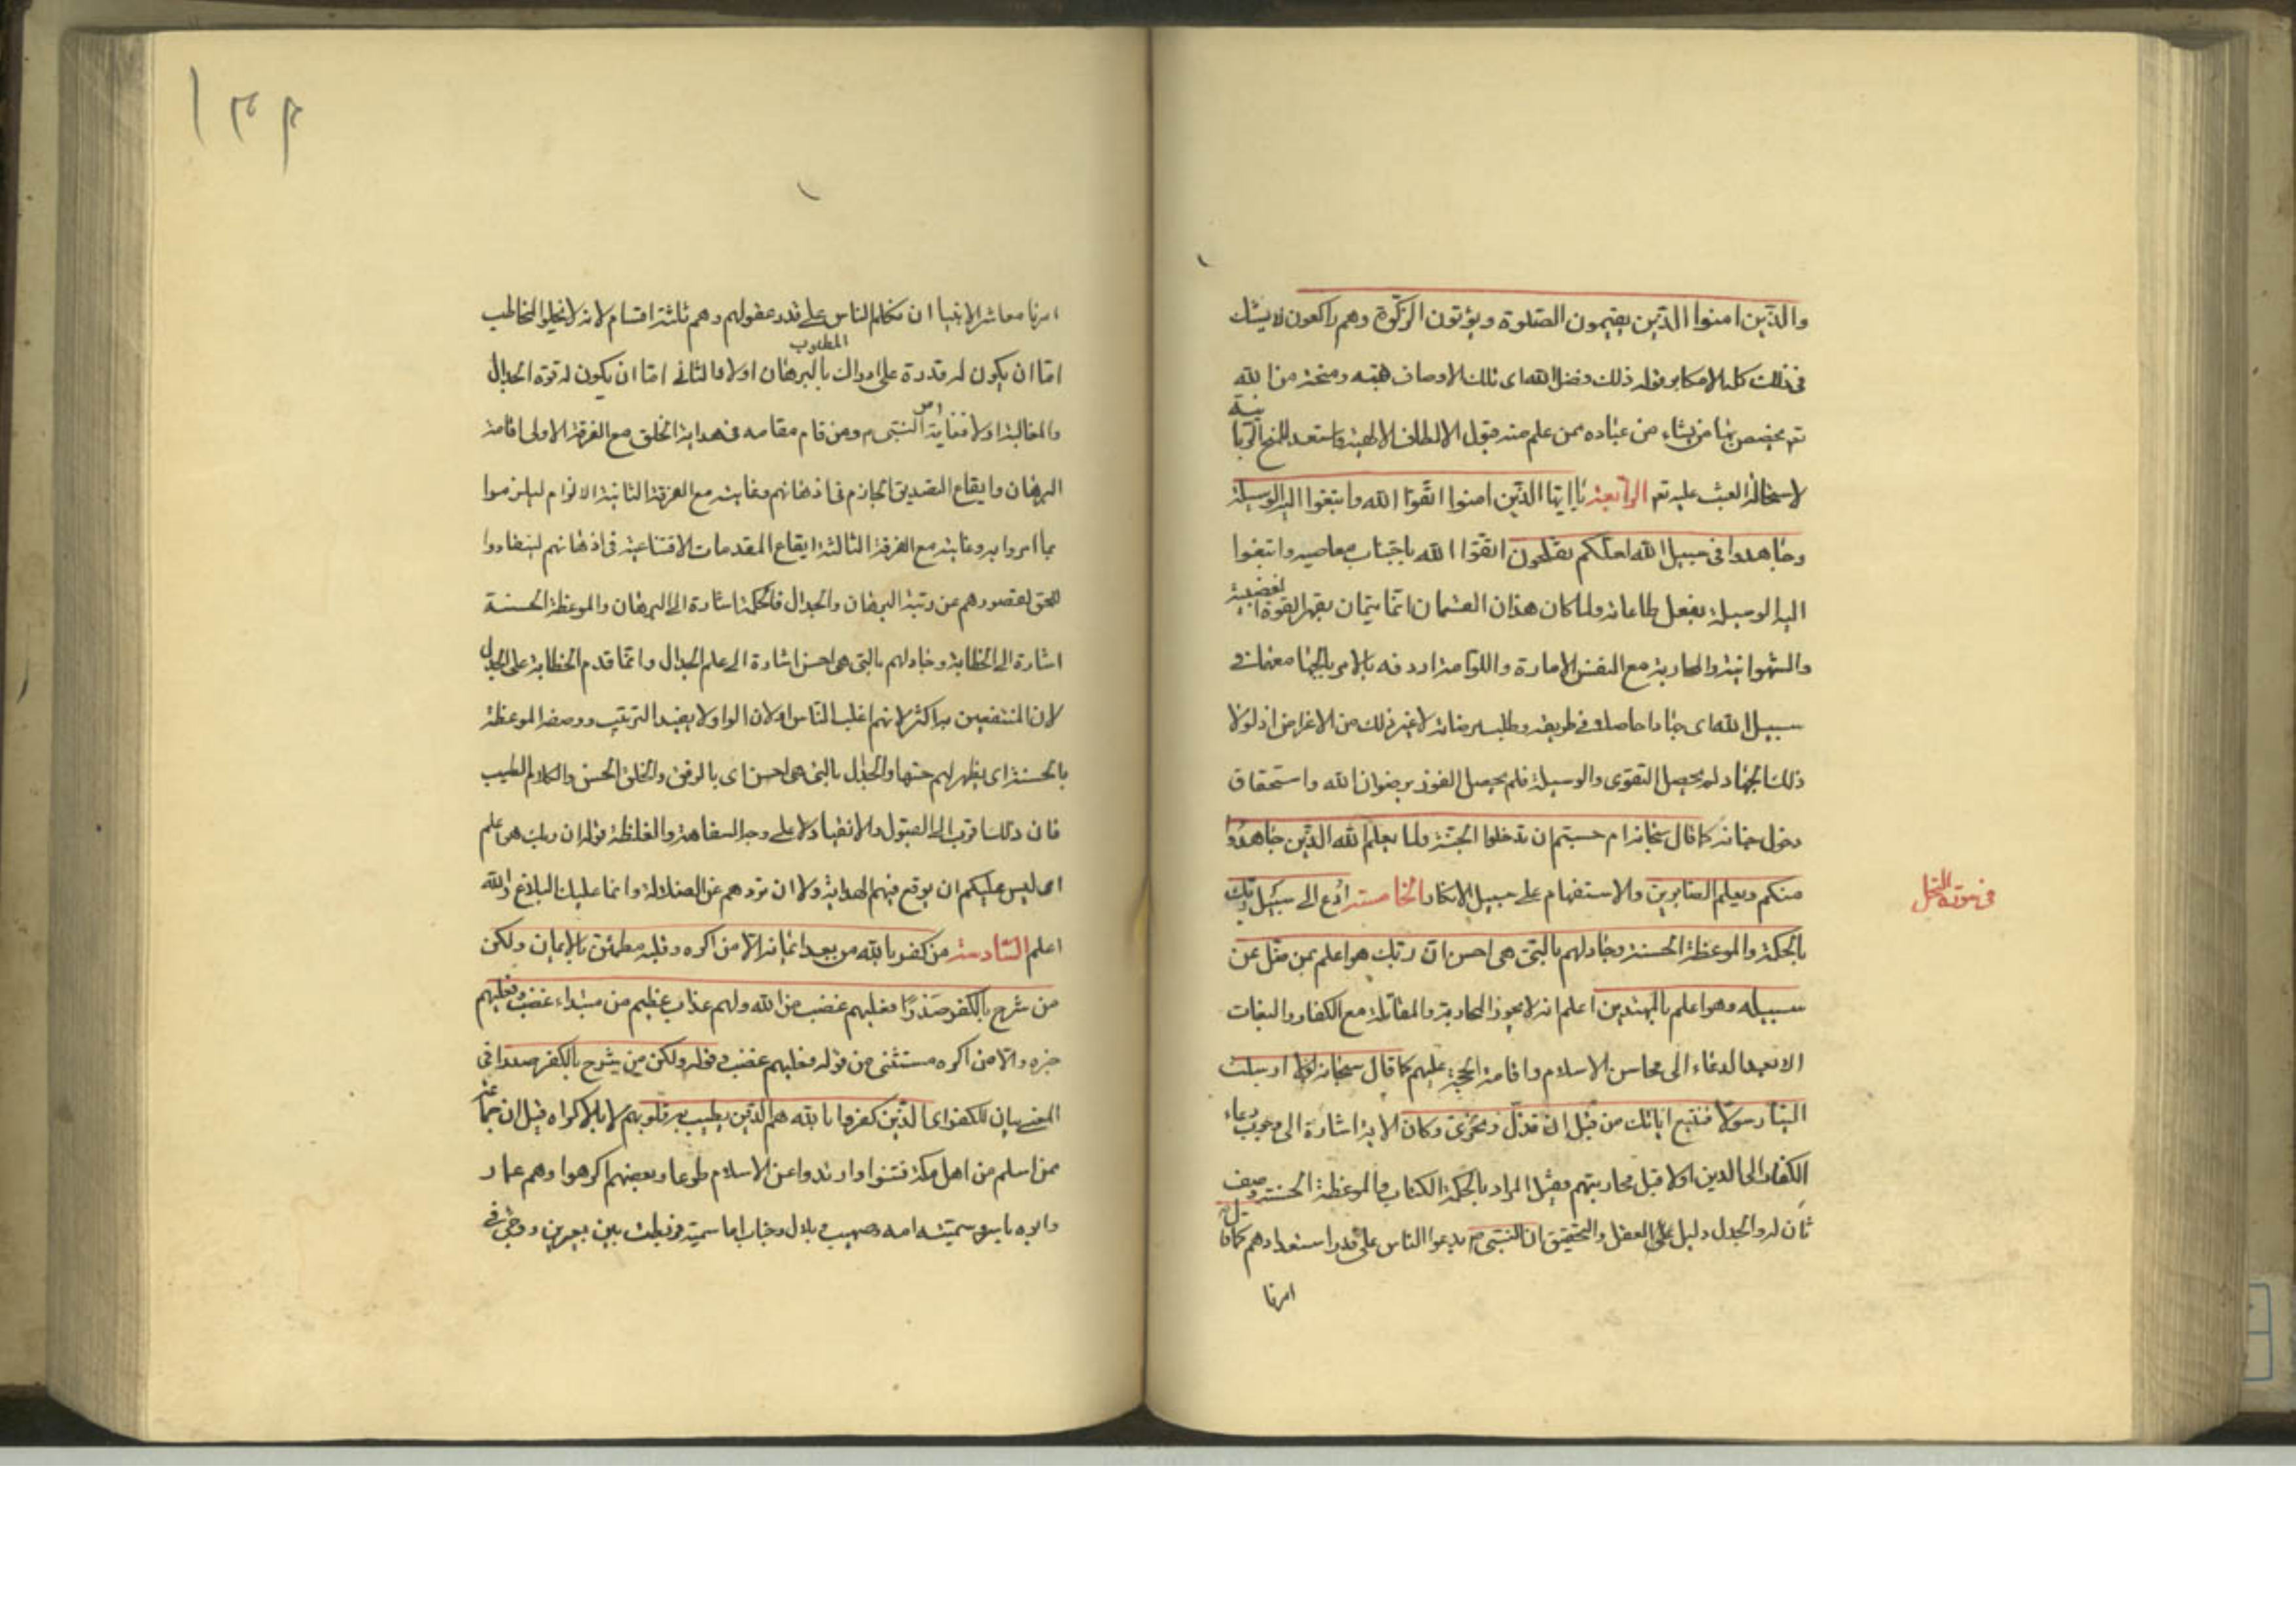 والذين امنوا الذين يقيمون الصلوة ويؤتون الزكوة وهم راكعون لا يشك
في ذلك كله الا مكابر قوله ذلك فضل الله اى تلك الاوصاف هبته ومنحة من الله
تعم يخصص بها من يشاء من عباده ممن علم منه قبول الالطاف الالهية واستعد للمنح الربانية
لاستحالة العبث عليه تعم الرابعة يا ايها الذين امنوا اتقوا الله وابتغوا اليه الوسيلة
وجاهدوا فى سبيل الله لعلكم تفلحون اتقوا الله باجتناب معاصيه وابتغوا
اليه الوسيلة بفعل طاعاته ولما كان هذان القسمان انما يتمان بقهر القوة الغضبية
والشهوانية والمحاربة مع النفس الامارة واللوامة اردفه بالامر بالجهاد معهما فى
سبيل الله اى جهادا حاصلا فى طريقه وطلب مرضاته لا غير ذلك من الاغراض اذ لولا
ذلك الجهاد لم يحصل التقوى والوسيلة فلم يحصل الفوز برضوان الله واستحقاق
دخول جنانه كما قال سبحانه ام حسبتم ان تدخلوا الجنة ولما يعلم الله الذين جاهدوا
منكم ويعلم الصابرين والاستفهام على سبيل الانكار الخامسة ادع الى سبيل ربك
فى سورة النحل
بالحكمة والموعظة الحسنة وجادلهم بالتى هى احسن ان ربك هو اعلم بمن ضل عن
سبيله وهو اعلم بالمهتدين اعلم انه لا يجوز المحاربة والمقاتلة مع الكفار والبغات
الا بعد الدعاء الى محاسن الاسلام واقامة الحجة عليهم كما قال سبحانه لولا ارسلت
الينا رسولا فنتبع اياتك من قبل ان نذل ونخزى وكان الاية اشارة الى وجوب دعاء
الكفار الى الدين اولا قبل محاربتهم وقيل المراد بالحكمة الكتاب والموعظة الحسنة وصف
ثان له والجدل دليل على العقل والتحقيق ان النبى ص يدعوا الناس على قدر استعدادهم كما قال
امرنا
امرنا معاشر الانبياء ان نكلم الناس على قدر عقولهم وهم ثلثة اقسام لانه لا يخلوا المخاطب
اما ان يكون له قدرة على ادراك المطلوب بالبرهان اولا والثانى اما ان يكون له قوة الجدال
والمغالبة اولا فغاية امر النبى ص ومن قام مقامه فى هداية الخلق مع الفرقة الاولى اقامة
البرهان وايقاع التصديق الجازم فى اذهانهم وغايته مع الفرقة الثانية الالزام ليلزموا
بما امروا به وغايته مع الفرقة الثالثة ايقاع المقدمات الاقناعية فى اذهانهم لينقادوا
للحق لقصورهم عن رتبة البرهان والجدال فالحكمة اشارة الى البرهان والموعظة الحسنة
اشارة الى الخطابة وجادلهم بالتى هى احسن اشارة الى علم الجدال وانما قدم الخطابة على الجدال
لان المنتفعين بها اكثر لانهم اغلب الناس او لان الواو لا يفيد الترتيب ووصف الموعظة
بالحسنة اى يظهر لهم حسنها والجدال بالتى هى احسن اى بالرفق والخلق الحسن والكلام الطيب
فان ذلك اقرب الى القبول والانقياد لا على وجه السفاهة والغلظة قوله ان ربك هو اعلم
اى ليس عليكم ان يوقع فيهم الهداية ولا ان تردهم عن الضلالة وانما عليك البلاغ والله
اعلم السادسة من كفر بالله من بعد ايمانه الا من اكره وقلبه مطمئن بالايمان ولكن
من شرح بالكفر صدرا فعليهم غضب من الله ولهم عذاب عظيم من مبتداء وفعليهم غضب
خبره والا من اكره مستثنى من قوله فعليهم غضب وقوله ولكن من شرح بالكفر صدرا فى
المعنى بيان للكفر اى الذين كفروا بالله هم الذين يطيب به قلوبهم لا بالاكراه قيل ان جماعة
ممن اسلم من اهل مكة فتنوا وارتدوا عن الاسلام طوعا وبعضهم اكرهوا وهم عمار
وابوه ياسر وسميته امه وصهيب وبلال وخباب اما سمية فربطت بين بعيرين ووجئ فى